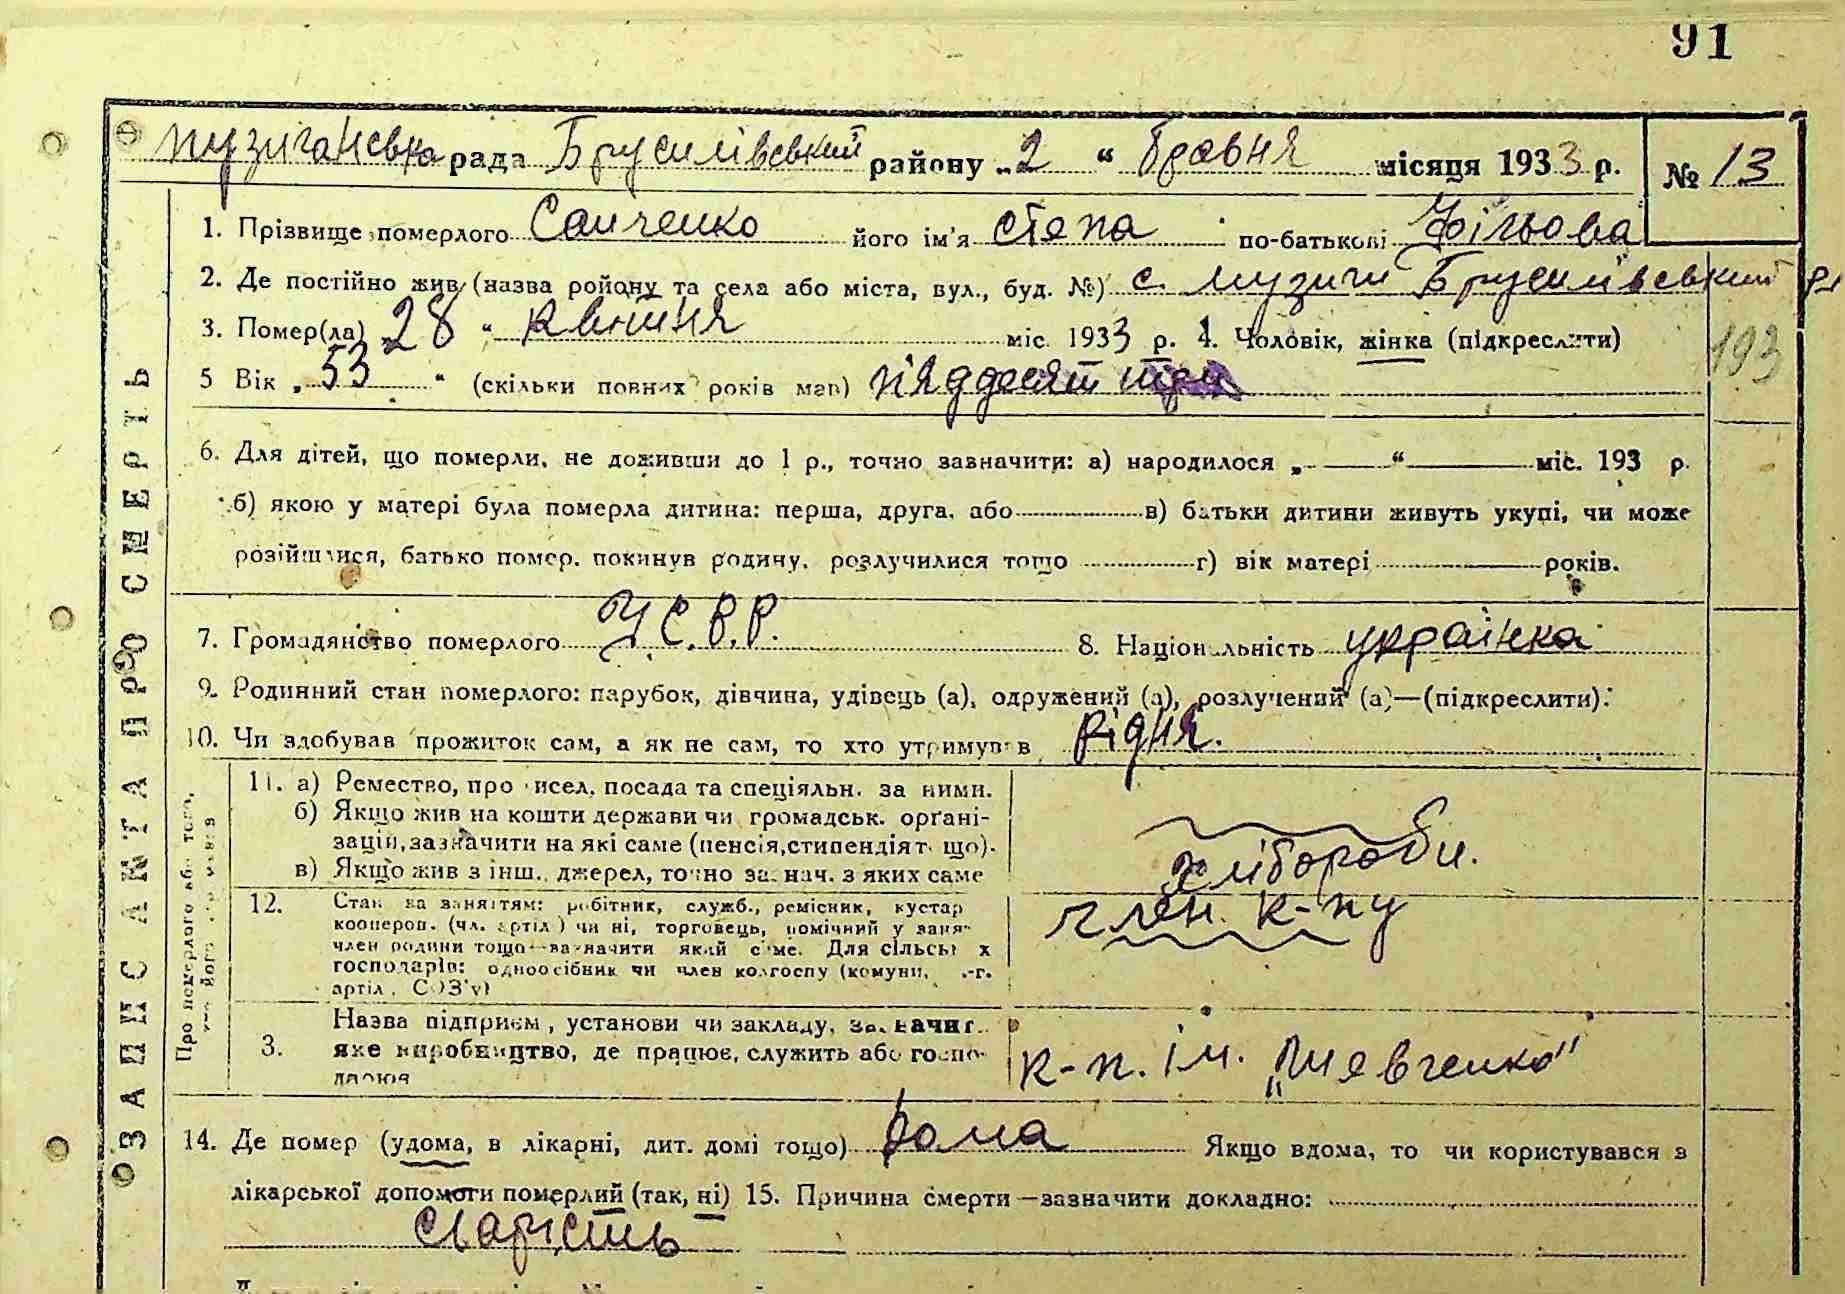 91
музичанська рада Брусилівський району „2“ травня місяця 1933 р. № 13
1. Прізвище померлого Санченко його ім'я Степа по-батькові
2. Де постійно жив (назва ройону та села або міста, вул., буд. №) с. музичи Брусилівський
3. Помер(ла) „28“ квітня міс. 1933 р. 4. Чоловік, жінка (підкреслити)
193
5 Вік „53“ (скільки повних років мав) пяддесят три
6. Для дітей, що померли, не доживши до 1 р., точно зазначити: а) народилося „—“ — міс. 193 р.
б) якою у матері була померла дитина: перша, друга, або в) батьки дитини живуть укупі, чи може
розійшлися, батько помер, покинув родину, розлучилися тощо г) вік матері років.
7. Громадянство померлого У.С.Р.Р. 8. Національність українка
9. Родинний стан померлого: парубок, дівчина, удівець (а), одружений (а), розлучений (а)—(підкреслити).
10. Чи здобував прожиток сам, а як не сам, то хто утримував рідня.
ЗАПИС АКТА ПРО СМЕРТЬ
Про померлого або того,
11. а) Ремество, професія, посада та спеціяльн. за ними.
б) Якщо жив на кошти держави чи громадськ. орґані-
зацій, зазначити на які саме (пенсія, стипендія т. що).
в) Якщо жив з інш. джерел, точно зазнач. з яких саме
хліборобн.
12. Стан за заняттям: робітник, служб., ремісник, кустар
коопер. (чл. артіл.) чи ні, торговець, помічний у заня-
член родини тощо—зазначити який саме. Для сільськ х
господарів: одноосібник чи член колгоспу (комуни, с.-г.
артіл., СОЗ'у)
член. к-пу
3. Назва підприєм., установи чи закладу, зазначит.
яке виробництво, де працює, служить або госпо-
дарює
к-п. ім. „Шевченко"
14. Де помер (удома, в лікарні, дит. домі тощо) дома Якщо вдома, то чи користувався з
лікарської допомоги померлий (так, ні) 15. Причина смерти—зазначити докладно:
старість